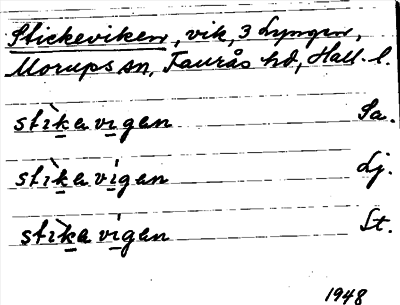 Stickeviken, vik, 3 Lyngen,
Morups sn, Faurås hd, Hall. l.
stìkavígan Sa.
stìkavígan Lj.
stìkavígan St.
1948